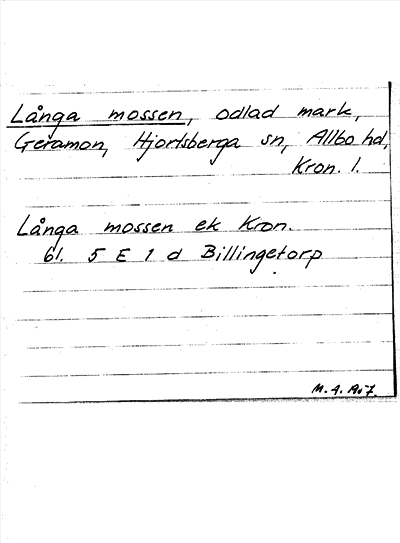 Långa mossen, odlad mark,
Geramon, Hjortsberga sn, Allbo hd,
Kron. l.
Långa mossen ek Kron.
61. 5 E 1 d Billingetorp
M. A.